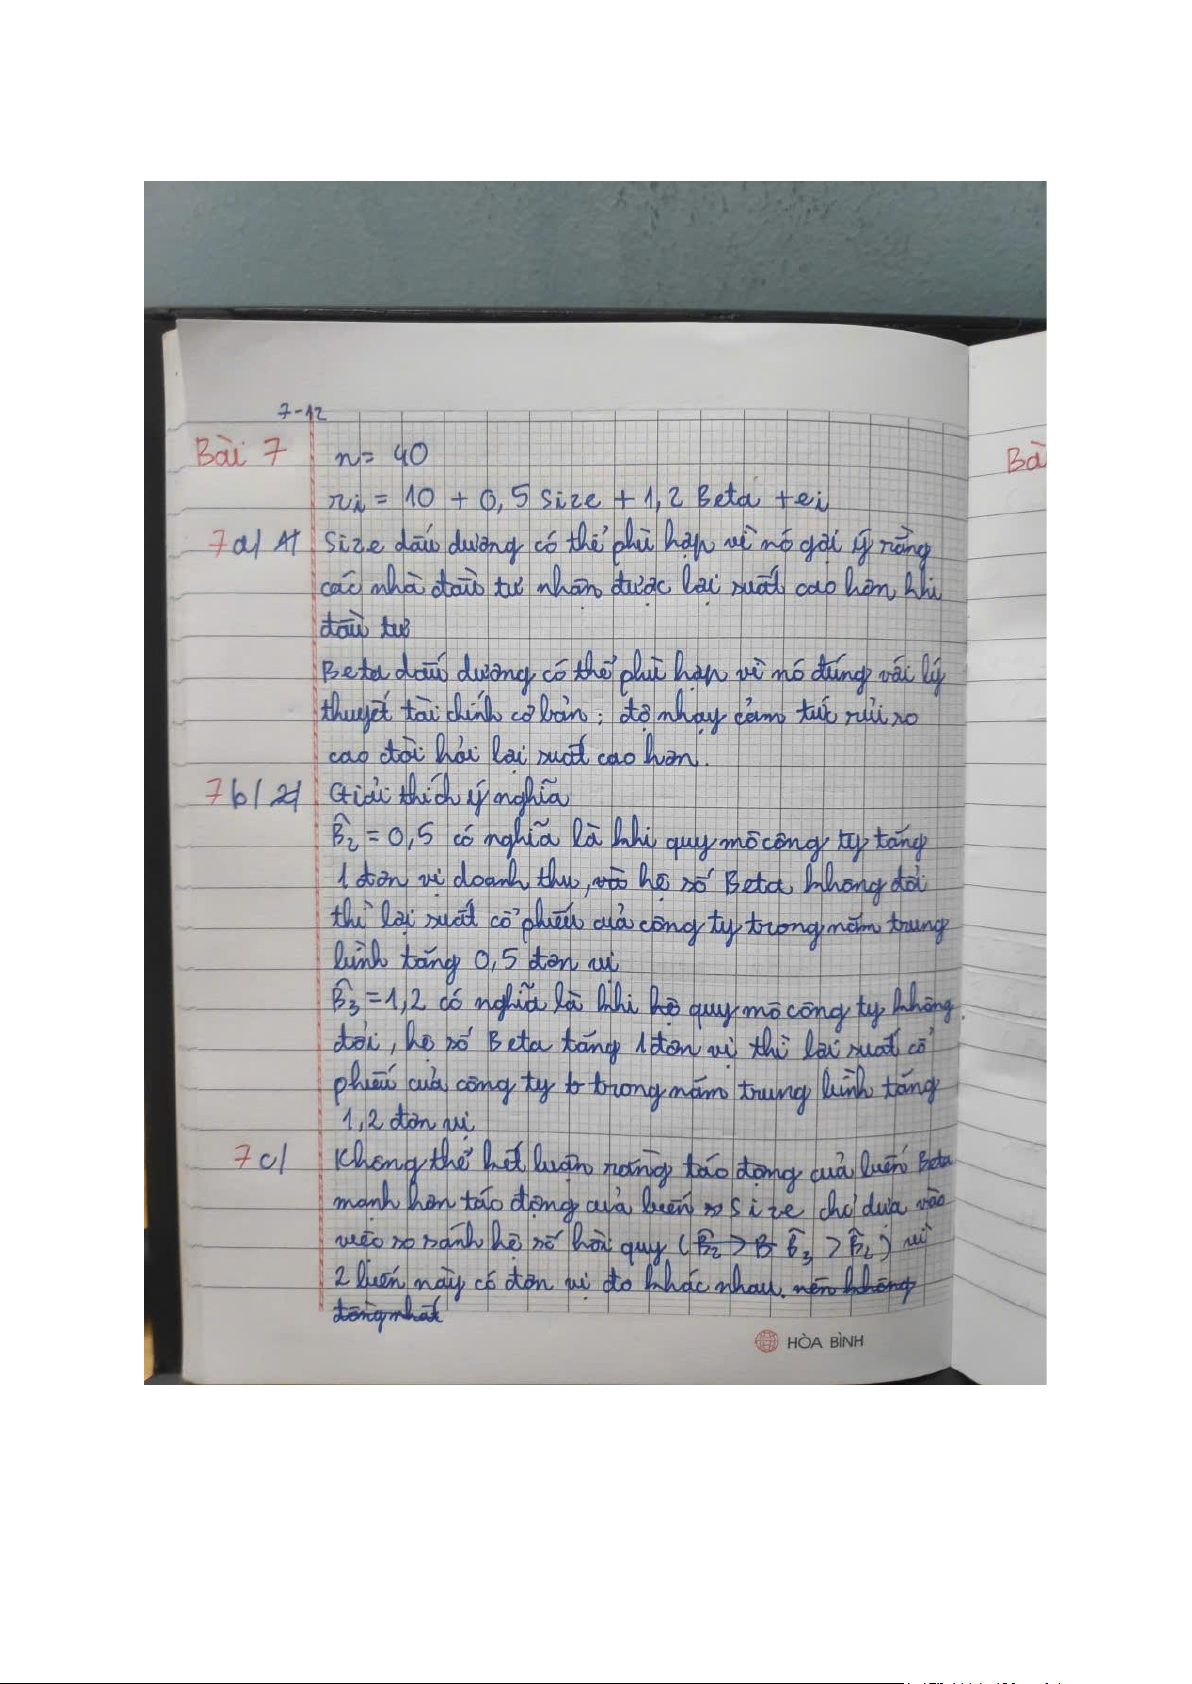 7-12
Bài 7 n = 40
ri = 10 + 0,5 Size + 1,2 Beta + ei
7a/ Size dấu dương có thể phù hợp vì nó gợi ý rằng
các nhà đầu tư nhận được lợi suất cao hơn khi
đầu tư
Beta dấu dương có thể phù hợp vì nó đúng với lý
thuyết tài chính cơ bản: độ nhạy cảm tức rủi ro
cao đòi hỏi lợi suất cao hơn.
7b/ Giải thích ý nghĩa
B̂2 = 0,5 có nghĩa là khi quy mô công ty tăng
1 đơn vị doanh thu, hệ số Beta không đổi
thì lợi suất cổ phiếu của công ty trong năm trung
bình tăng 0,5 đơn vị
B̂3 = 1,2 có nghĩa là khi quy mô công ty không
đổi, hệ số Beta tăng 1 đơn vị thì lợi suất cổ
phiếu của công ty trong năm trung bình tăng
1,2 đơn vị
7c/ Không thể kết luận rằng tác động của biến Beta
mạnh hơn tác động của biến Size chỉ dựa vào
việc so sánh hệ số hồi quy (B̂3 > B̂2) vì
2 biến này có đơn vị đo khác nhau. nên không
đồng nhất
HÒA BÌNH
Bà